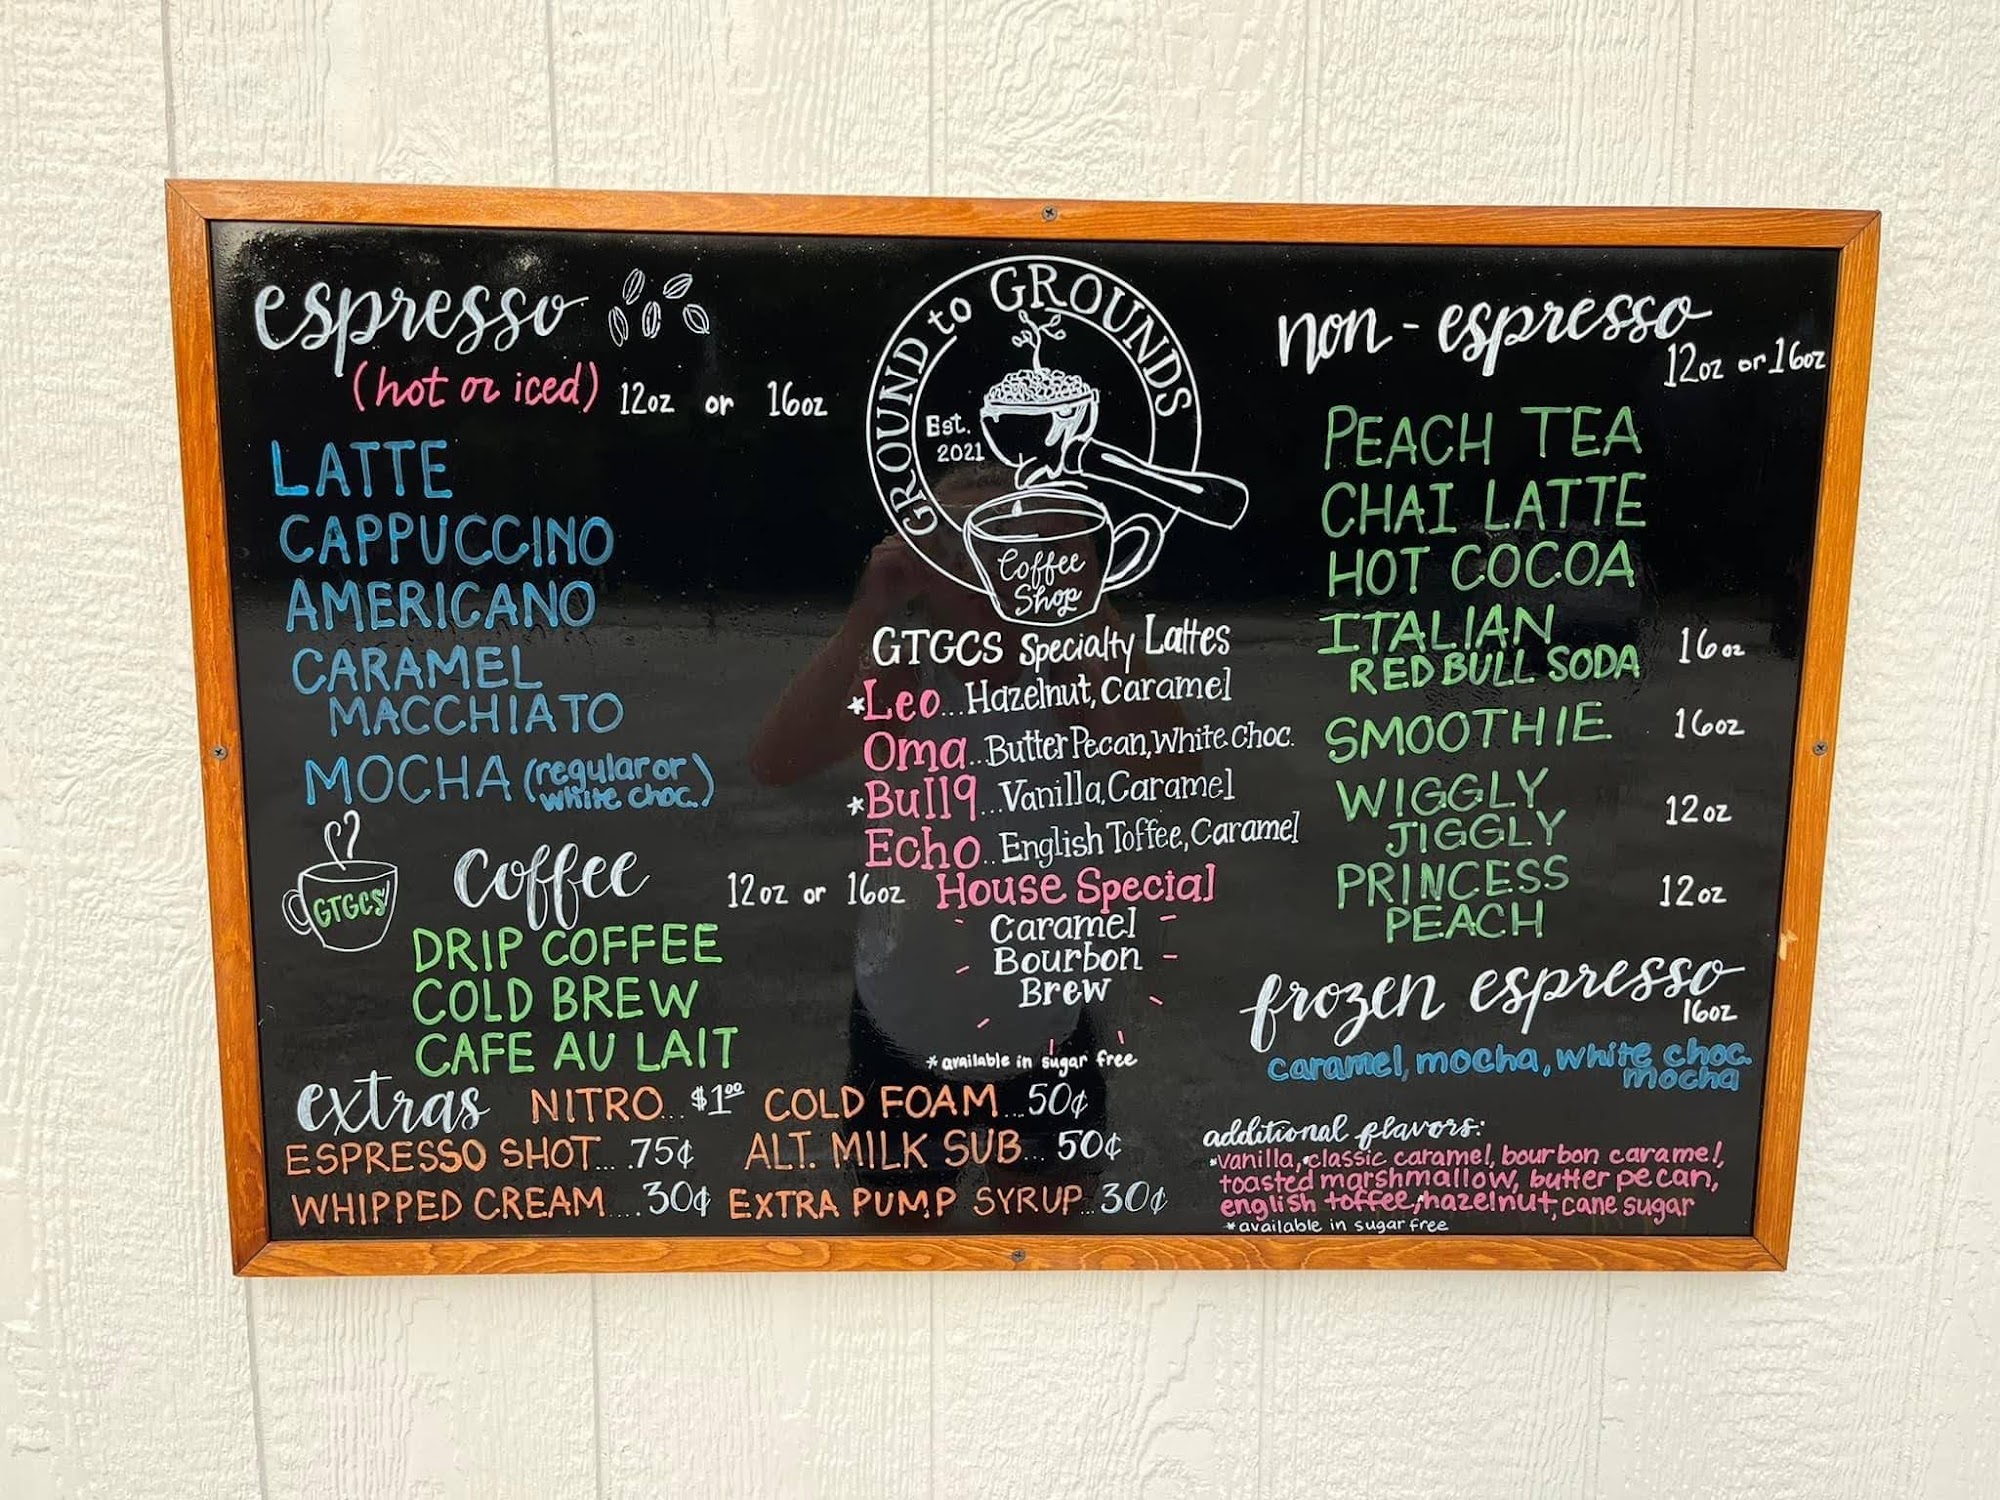 espresso
(hot or iced) 12oz or 16oz
LATTE
CAPPUCCINO
AMERICANO
CARAMEL
MACCHIATO
MOCHA (regular or
white choc.)
GTGCS
Coffee 12oz or 16oz
DRIP COFFEE
COLD BREW
CAFE AU LAIT
GROUND to GROUNDS
Est.
2021
Coffee
Shop
GTGCS Specialty Lattes
*Leo...Hazelnut, Caramel
Oma...Butter Pecan, White Choc.
*Bull9...Vanilla, Caramel
Echo..English Toffee, Caramel
House Special
Caramel
Bourbon
Brew
*available in sugar free
non-espresso
12oz or 16oz
PEACH TEA
CHAI LATTE
HOT COCOA
ITALIAN
RED BULL SODA 16oz
SMOOTHIE 16oz
WIGGLY
JIGGLY 12oz
PRINCESS
PEACH 12oz
frozen espresso
16oz
caramel, mocha, white choc.
mocha
extras NITRO...$1.00 COLD FOAM...50¢
ESPRESSO SHOT....75¢ ALT. MILK SUB...50¢
WHIPPED CREAM....30¢ EXTRA PUMP SYRUP...30¢
additional flavors:
*vanilla, *classic caramel, bourbon caramel,
toasted marshmallow, butter pecan,
english toffee, *hazelnut, cane sugar
*available in sugar free